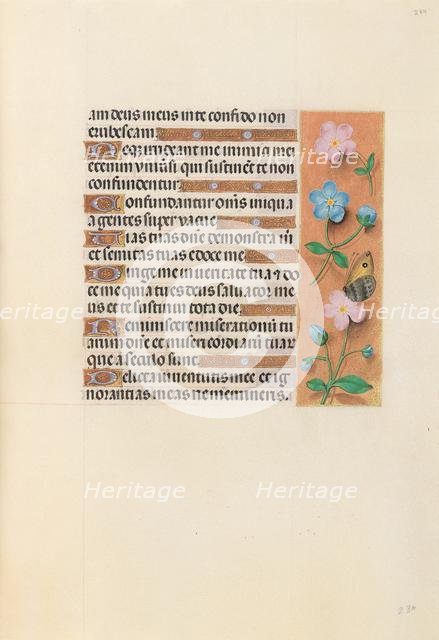 234
am deus meus in te confido non
erubescam
Neq; irrideant me inimici mei
etenim vniuersi qui sustinent te non
confundentur
Confundantur om̄s iniqua
agentes super vacue
Vias tuas dn̄e demonstra m̄
et semitas tuas edoce me
Dirige me in veritate tua et do
ce me quia tu es deus saluator me
us et te sustinui tota die
Reminiscere miserationū tu
arum dn̄e et misericordiarū tuar
que a seculo sunt
Delicta iuuentutis mee et ig
norantias meas ne memineris.
Heritage Heritage
Heritage Heritage
Heritage Heritage
234